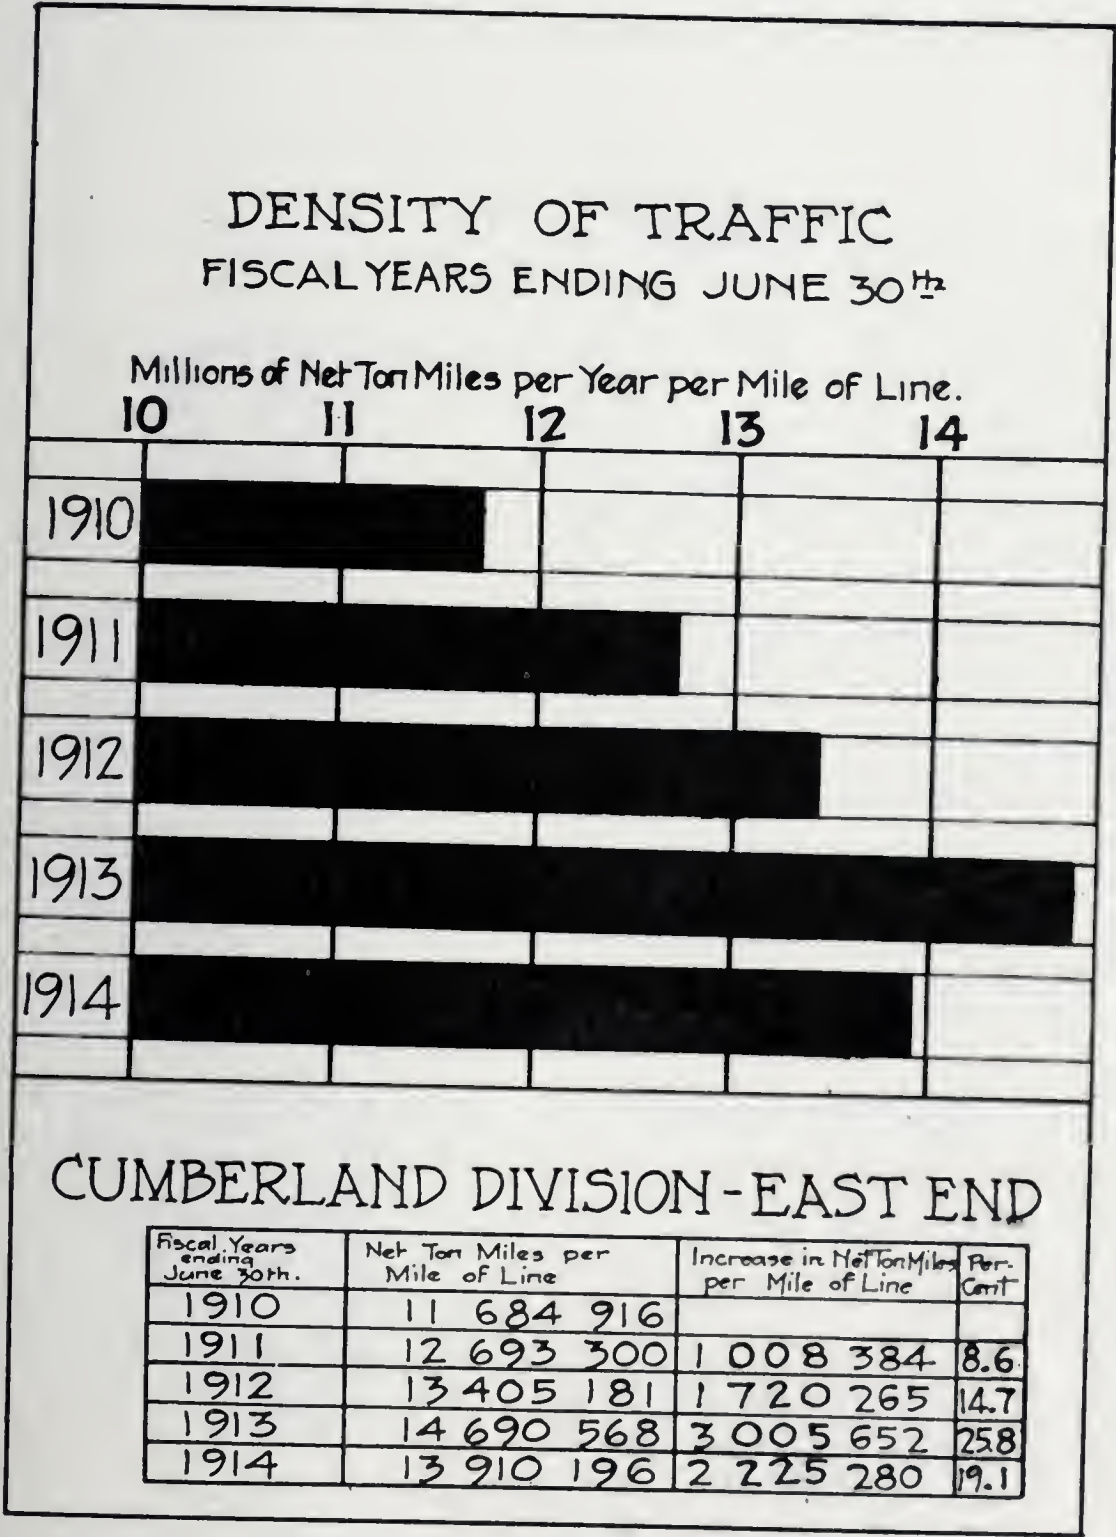 DENSITY OF TRAFFIC
FISCAL YEARS ENDING JUNE 30th
Millions of Net Ton Miles per Year per Mile of Line.
10 11 12 13 14
1910
1911
1912
1913
1914
CUMBERLAND DIVISION - EAST END
Fiscal Years ending June 30th. Net Ton Miles per Mile of Line Increase in Net Ton Miles per Mile of Line Per-Cent
1910 11 684 916
1911 12 693 300 1 008 384 8.6
1912 13 405 181 1 720 265 14.7
1913 14 690 568 3 005 652 25.8
1914 13 910 196 2 225 280 19.1